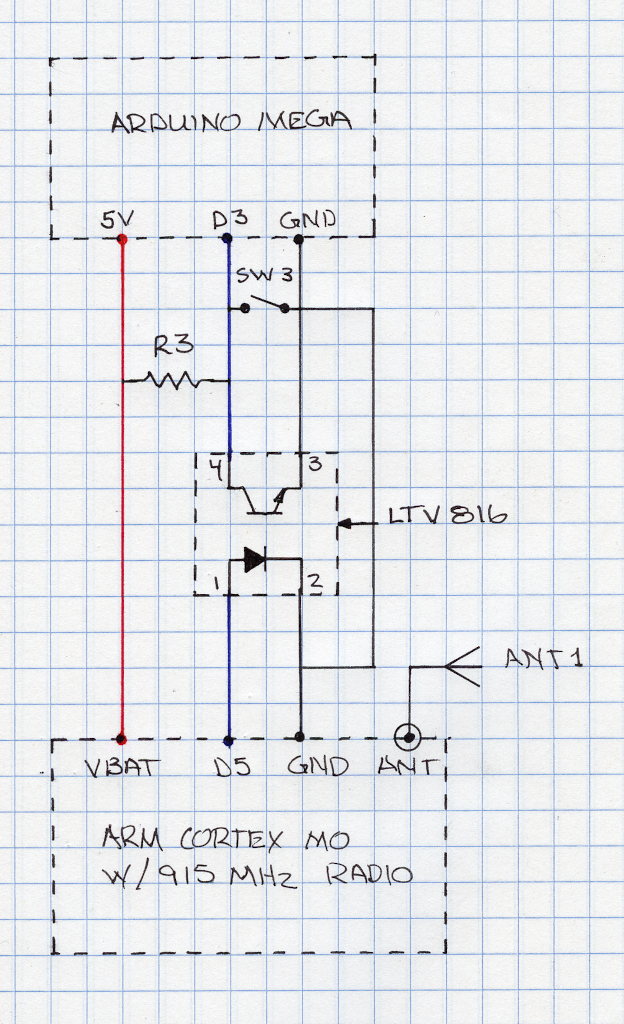 ARDUINO MEGA
5V D3 GND
SW3
R3
4 3
LTV 816
1 2
ANT1
VBAT D5 GND ANT
ARM CORTEX M0
W/915 MHz RADIO